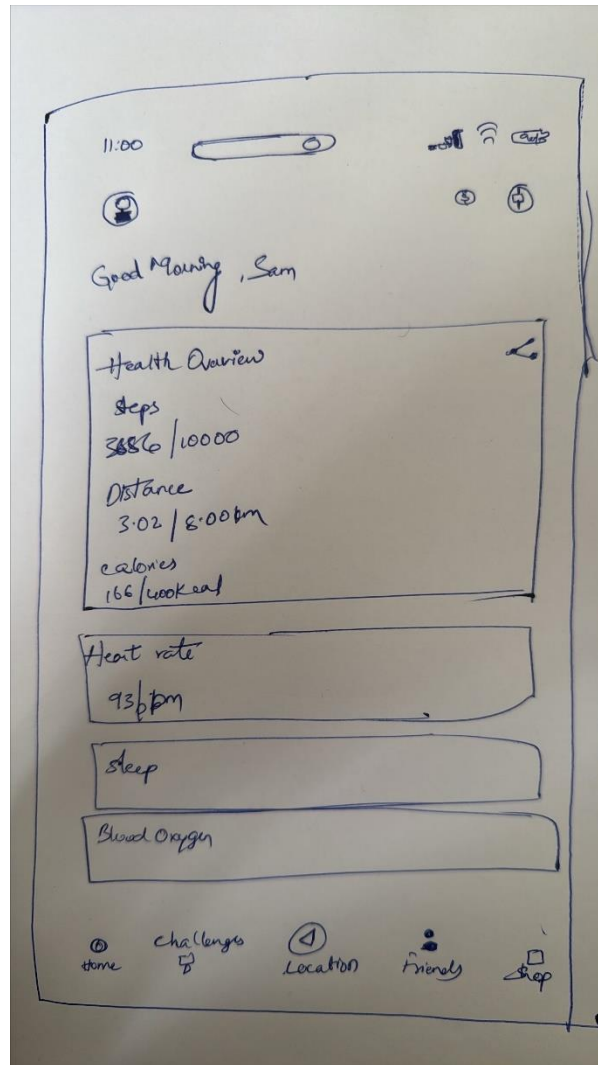 11:00
$
Good Morning, Sam
Health Overview
Steps
/10000
Distance
3.02 / 8.00km
calories
166/400kcal
Heart rate
93bpm
Sleep
Blood Oxygen
Home Challenges Location Friends Shop